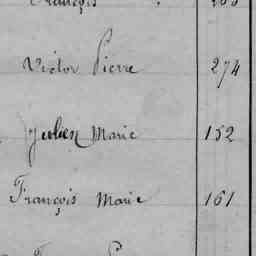 François
Victor Pierre 274
Julien Marie 152
François Marie 161